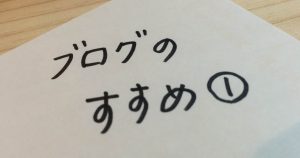 ブログの
すすめ①